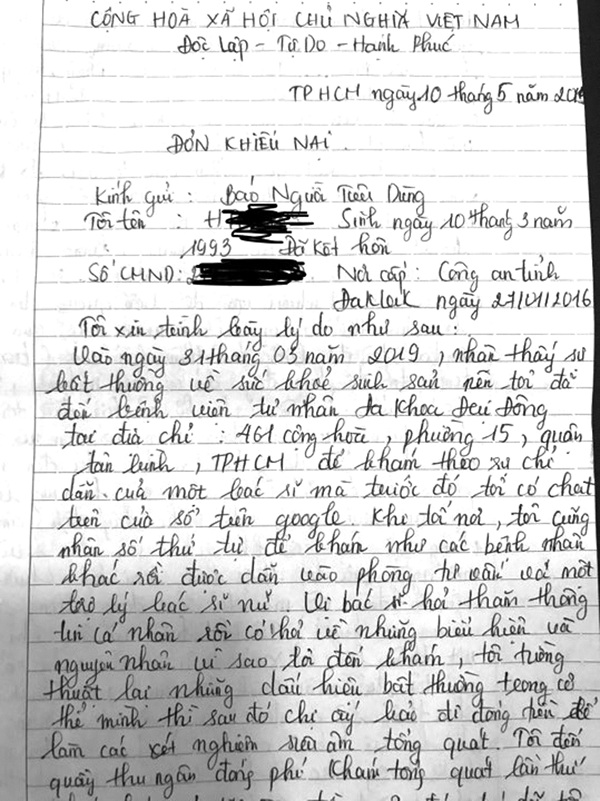 CỘNG HOÀ XÃ HỘI CHỦ NGHĨA VIỆT NAM
Độc Lập - Tự Do - Hạnh Phúc
TP HCM ngày 10 tháng 5 năm 2019
ĐƠN KHIẾU NẠI
Kính gửi : Báo Người Tiêu Dùng
Tôi tên : H Sinh ngày 10 tháng 3 năm
1993 Đã Kết hôn
Số CMND: 2 Nơi cấp : Công an tỉnh
Đaklak ngày 27/01/2016
Tôi xin trình bày lý do như sau :
Vào ngày 31 tháng 03 năm 2019, nhận thấy sự
bất thường về sức khoẻ sinh sản nên tôi đã
đến bệnh viện tư nhân đa khoa Đại Đông
tại địa chỉ : 461 cộng hoà, phường 15, quận
tân bình, TPHCM để khám theo sự chỉ
dẫn của một bác sĩ mà trước đó tôi có chat
trên cửa sổ trên google. Khi tới nơi, tôi cũng
nhận số thứ tự để khám như các bệnh nhân
khác rồi được dẫn vào phòng tư vấn với một
trợ lý bác sĩ nữ. Vị bác sĩ hỏi thăm thông
tin cá nhân rồi có hỏi về những biểu hiện và
nguyên nhân vì sao tôi đến khám, tôi tường
thuật lại những dấu hiệu bất thường trong cơ
thể mình thì sau đó chị ấy bảo đi đóng tiền để
làm các xét nghiệm siêu âm tổng quát. Tôi đến
quầy thu ngân đóng phí khám tổng quát lần thứ